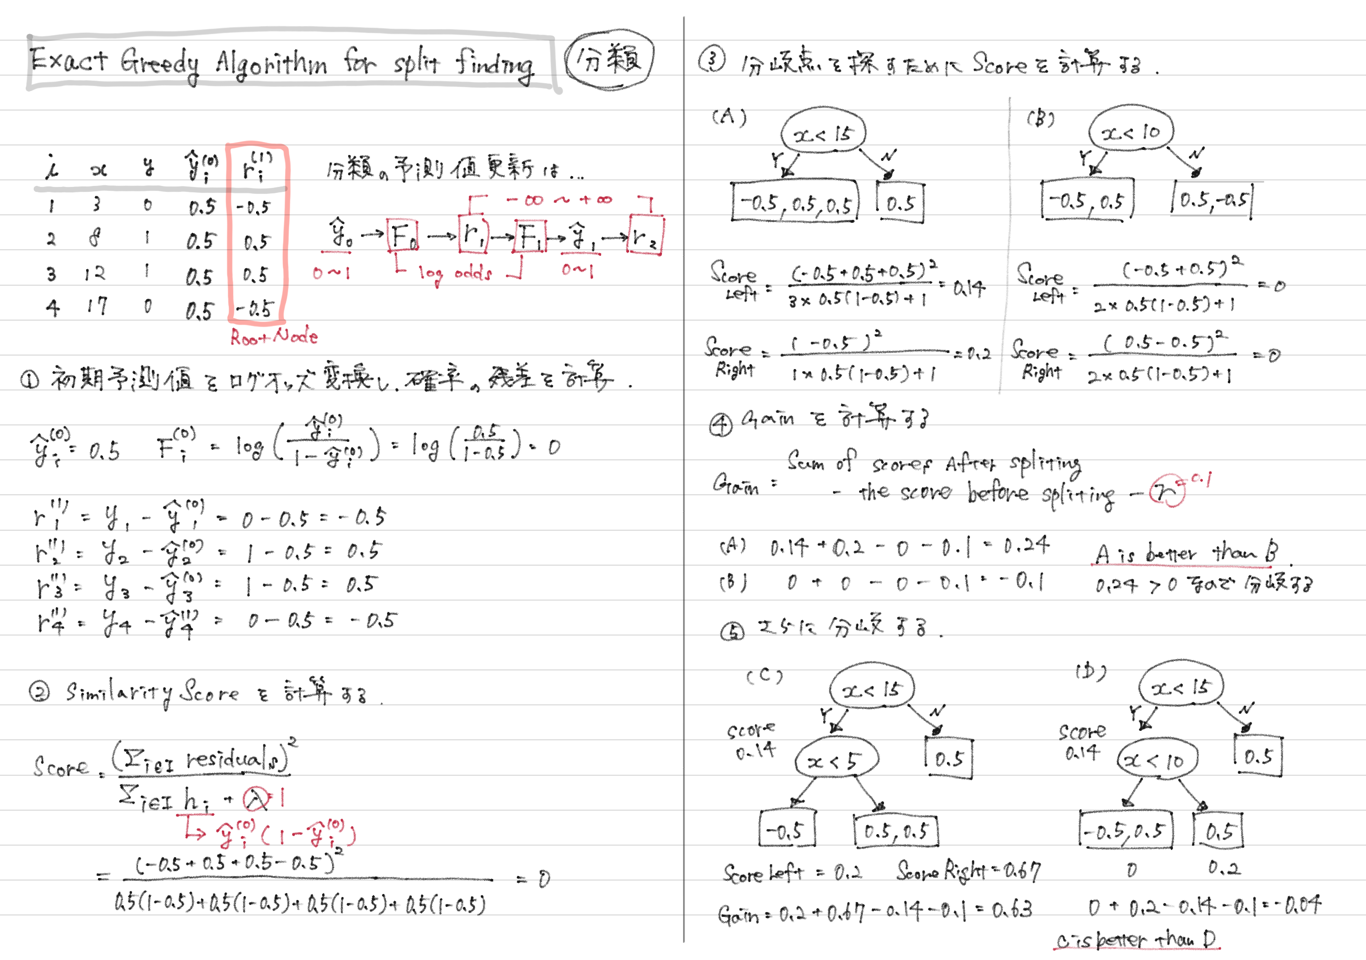 Exact Greedy Algorithm for split finding 分類
i x y ŷᵢ⁽⁰⁾ rᵢ⁽¹⁾
1 3 0 0.5 -0.5
2 8 1 0.5 0.5
3 12 1 0.5 0.5
4 17 0 0.5 -0.5
Root Node
分類の予測値更新は...
-∞ ~ +∞
ŷ₀ → F₀ → r₁ → F₁ → ŷ₁ → r₂
0~1 log odds 0~1
① 初期予測値をログオッズ変換し、確率の残差を計算.
ŷᵢ⁽⁰⁾ = 0.5 Fᵢ⁽⁰⁾ = log(ŷᵢ⁽⁰⁾ / 1-ŷᵢ⁽⁰⁾) = log(0.5 / 1-0.5) = 0
r₁⁽¹⁾ = y₁ - ŷ₁⁽⁰⁾ = 0 - 0.5 = -0.5
r₂⁽¹⁾ = y₂ - ŷ₂⁽⁰⁾ = 1 - 0.5 = 0.5
r₃⁽¹⁾ = y₃ - ŷ₃⁽⁰⁾ = 1 - 0.5 = 0.5
r₄⁽¹⁾ = y₄ - ŷ₄⁽¹⁾ = 0 - 0.5 = -0.5
② Similarity Score を計算する.
Score = (Σi∈I residuals)² / Σi∈I hᵢ + λ=1
↳ ŷᵢ⁽⁰⁾(1-ŷᵢ⁽⁰⁾)
= (-0.5+0.5+0.5-0.5)² / 0.5(1-0.5)+0.5(1-0.5)+0.5(1-0.5)+0.5(1-0.5) = 0
③ 分岐点を探すために Scoreを計算する.
(A) x<15
Y N
-0.5, 0.5, 0.5 0.5
Score Left = (-0.5+0.5+0.5)² / 3×0.5(1-0.5)+1 = 0.14
Score Right = (-0.5)² / 1×0.5(1-0.5)+1 = 0.2
(B) x<10
Y N
-0.5, 0.5 0.5, -0.5
Score Left = (-0.5+0.5)² / 2×0.5(1-0.5)+1 = 0
Score Right = (0.5-0.5)² / 2×0.5(1-0.5)+1 = 0
④ Gain を計算する
Gain = Sum of scores After spliting
- the score before spliting - r=0.1
(A) 0.14 + 0.2 - 0 - 0.1 = 0.24
(B) 0 + 0 - 0 - 0.1 = -0.1
A is better than B.
0.24 > 0 なので分岐する
⑤ さらに分岐する.
(C) x<15
Y N
score 0.14
x<5 0.5
-0.5 0.5, 0.5
Score Left = 0.2 Score Right = 0.67
Gain = 0.2 + 0.67 - 0.14 - 0.1 = 0.63
(D) x<15
Y N
score 0.14
x<10 0.5
-0.5, 0.5 0.5
0 0.2
0 + 0.2 - 0.14 - 0.1 = -0.04
C is better than D